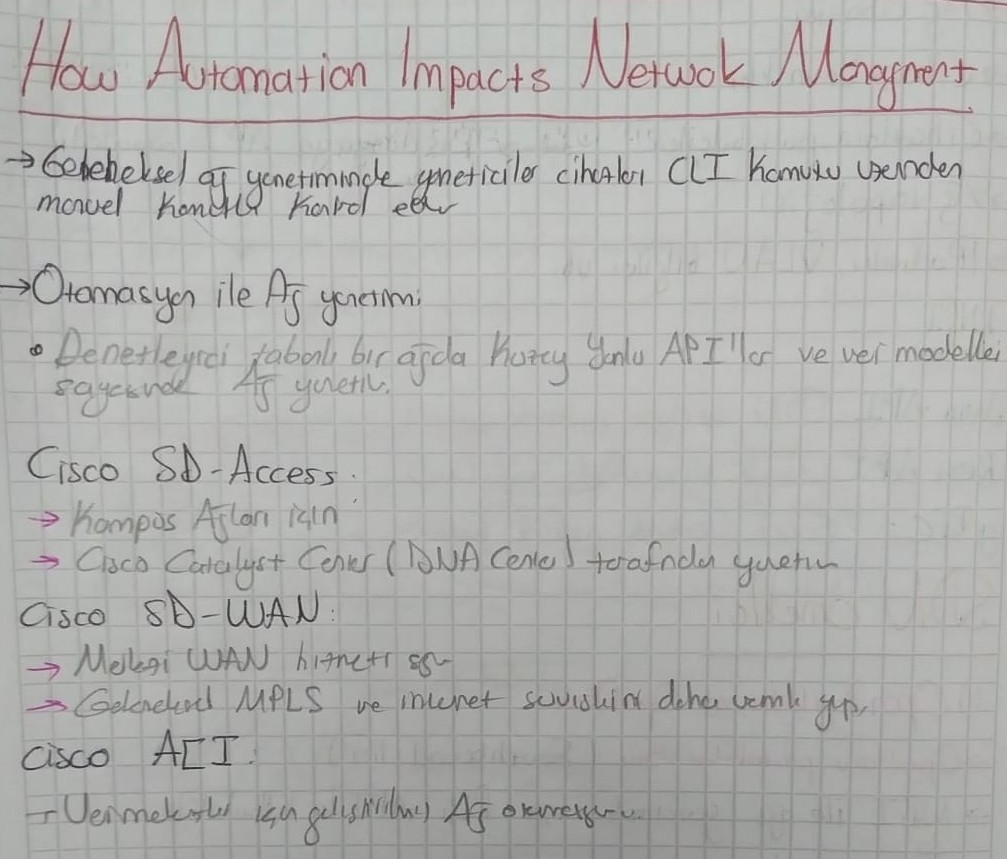 How Automation Impacts Netwok Mangment
→ Geleneksel ağ yönetiminde yöneticiler cihazları CLI Komutu üzerinden
manuel Kontrol eder
→ Otomasyon ile Ağ yönetimi
• Denetleyici tabanlı bir ağda Kuzey Yönlü API'lar ve veri modelleri
sayesinde Ağ yönetilir.
Cisco SD-Access:
→ Kampüs Ağları için
→ Cisco Catalyst Center (DNA Center) tarafından yönetilir
Cisco SD-WAN:
→ Merkezi WAN hizmeti sağlar
→ Geleneksel MPLS ve internet servislerini daha verimli yapar
Cisco ACI:
→ Veri merkezleri için geliştirilmiş Ağ otomasyonu